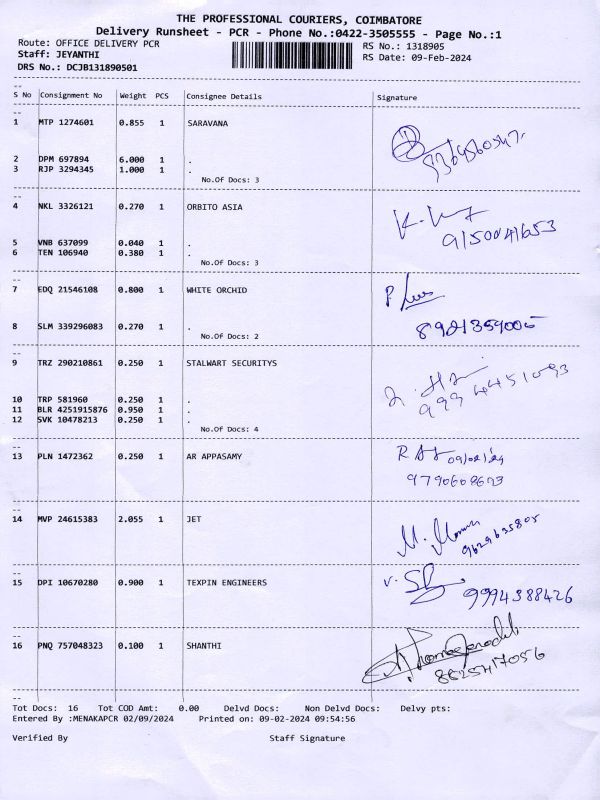 THE PROFESSIONAL COURIERS, COIMBATORE
Delivery Runsheet - PCR - Phone No.:0422-3505555 - Page No.:1
Route: OFFICE DELIVERY PCR
RS No.: 1318905
Staff: JEYANTHI
RS Date: 09-Feb-2024
DRS No.: DCJB131890501
S No Consignment No Weight PCS Consignee Details Signature
1 MTP 1274601 0.855 1 SARAVANA
2 DPM 697894 6.000 1 .
3 RJP 3294345 1.000 1 .
No.Of Docs: 3
4 NKL 3326121 0.270 1 ORBITO ASIA
9150041653
5 VNB 637099 0.040 1 .
6 TEN 106940 0.380 1 .
No.Of Docs: 3
7 EDQ 21546108 0.800 1 WHITE ORCHID
8 SLM 339296083 0.270 1 .
No.Of Docs: 2
9 TRZ 290210861 0.250 1 STALWART SECURITYS
10 TRP 581960 0.250 1 .
11 BLR 4251915876 0.950 1 .
12 SVK 10478213 0.250 1 .
No.Of Docs: 4
13 PLN 1472362 0.250 1 AR APPASAMY
09/02/24
14 MVP 24615383 2.055 1 JET
9629635805
15 DPI 10670280 0.900 1 TEXPIN ENGINEERS
9994388426
16 PNQ 757048323 0.100 1 SHANTHI
Tot Docs: 16 Tot COD Amt: 0.00 Delvd Docs: Non Delvd Docs: Delvy pts:
Entered By :MENAKAPCR 02/09/2024 Printed on: 09-02-2024 09:54:56
Verified By Staff Signature